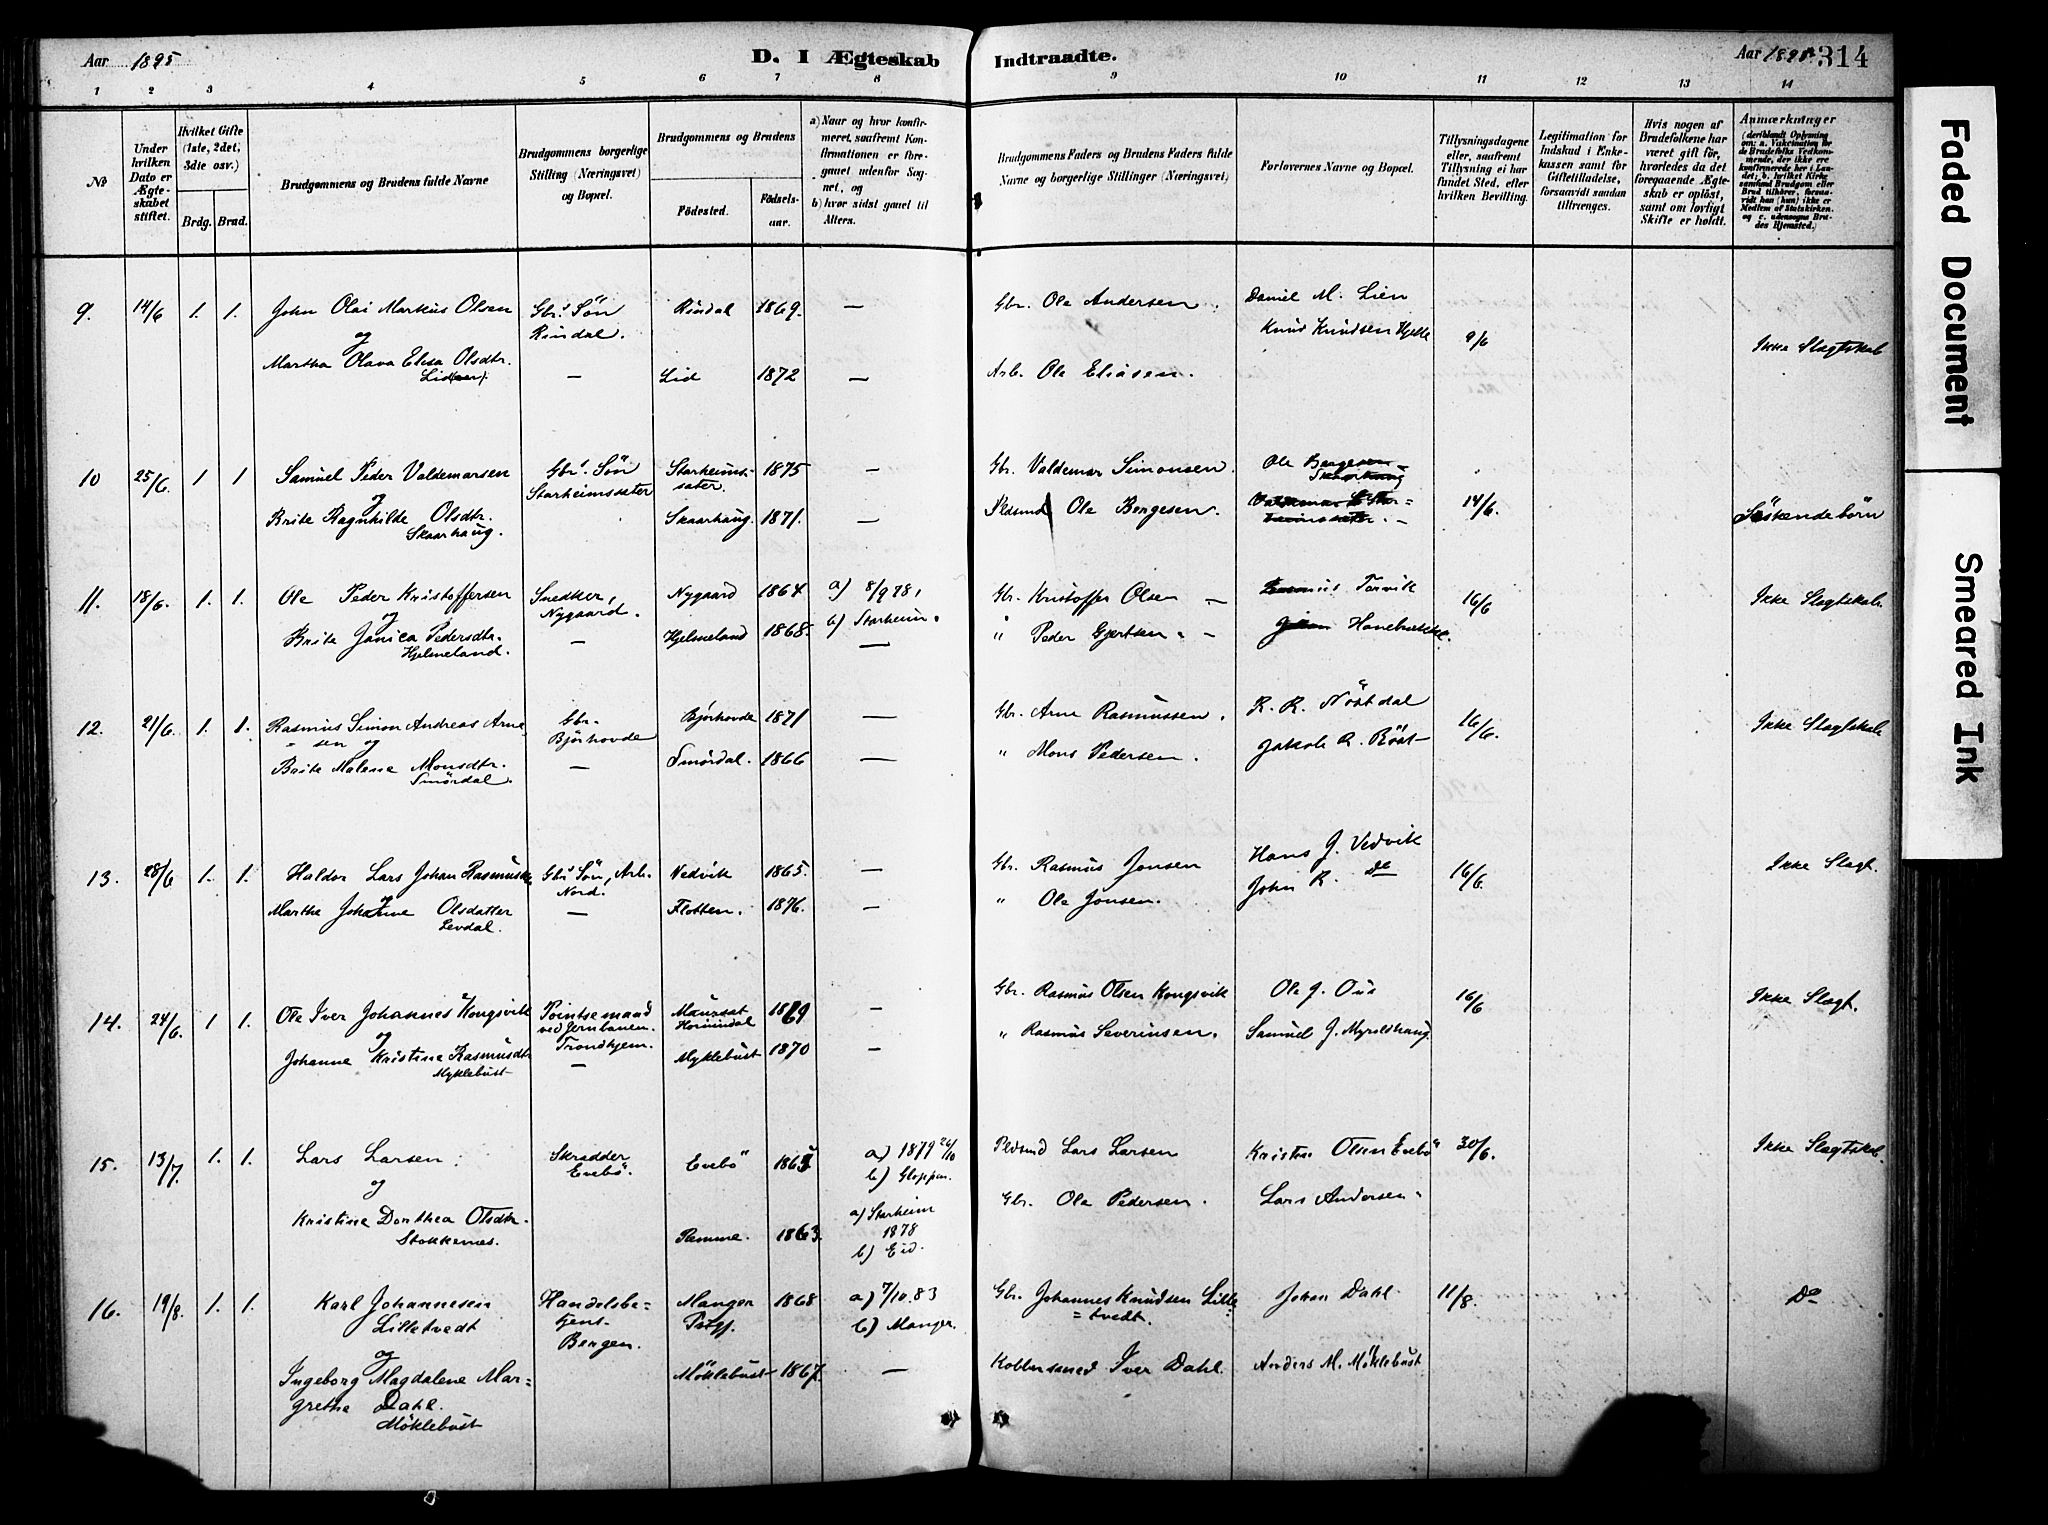 Aar 1895
D. I Ægteskab Indtraadte.
Aar 1895. 314
1 2 3 4 5 6 7 8 9 10 11 12 13 14
№
Under hvilken Dato er Ægteskabet stiftet.
Hvilket Gifte (1ste, 2det, 3die osv.)
Brdg. Brud.
Brudgommens og Brudens fulde Navne
Brudgommens borgerlige Stilling (Næringsvei) og Bopæl.
Brudgommens og Brudens
Fødested.
Fødselsaar.
a) Naar og hvor konfirmeret, saafremt Konfirmationen er foregaaet udenfor Sognet, og
b) hvor sidst gaaet til Alters.
Brudgommens Faders og Brudens Faders fulde Navne og borgerlige Stillinger (Næringsvei)
Forlovernes Navne og Bopæl.
Tillysningsdagene eller, saafremt Tillysning ei har fundet Sted, efter hvilken Bevilling.
Legitimation for Indskud i Enkekassen samt for Giftetilladelse, forsaavidt saadan tiltrænges.
Hvis nogen af Brudefolkene har været gift før, hvorledes da det foregaaende Ægteskab er opløst, samt om lovligt Skifte er holdt.
Anmærkninger
(deriblandt Oplysning om: a. Vakcination for de Brudefolks Vedkommende, der ikke ere konfirmerede her i Landet; b. hvilket Kirkesamfund Brudgom eller Brud tilhører, forsaavidt han (hun) ikke er Medlem af Statskirken, og c. udensogns Brudes Hjemsted.)
9. 14/6 1. 1. John Olai Markus Olsen Gbr.s Søn Rindal 1869. — Gbr. Ole Andersen. Daniel M. Lien
og Rindal. Knud Knudsen Hjelle 9/6
Martha Olava Elisa Olsdtr. — Lid 1872 — Arb. Ole Eliasen. Ikke Slagtskab
10 25/6. 1 1 Samuel Peder Valdemarsen Gbr.s Søn Starheimssæter. 1875 — Gbr. Valdemar Simonsen. Ole Bergesen
og Starheimssæter Skaarhaug
Brite Ragnhilde Olsdtr. Skaarhaug. 1871. — Ole Bergesen. 14/6. Søskendebørn
Skaarhaug.
11. 18/6. 1. 1. Ole Peder Kristoffersen Snedker, Nygaard 1864 a) 8/9 78, Gbr. Kristoffer Olsen — Torvik 16/6 Ikke Slagtskab
og Nygaard. b) Starheim.
Brite Janica Pedersdtr. — Hjelmeland 1868. — " Peder Gjertsen. —
Hjelmeland.
12. 21/6. 1. 1. Rasmus Simon Andreas Arne= Gbr. Bjørhovde 1871 — Gbr. Arne Rasmussen. R. R. Nöstdal 16/6. Ikke Slagtskab
sen og Bjørhovde
Brite Malene Monsdtr. — Smördal. 1866 — " Mons Pedersen. Jakob R.
Smördal.
13. 28/6 1. 1. Haldor Lars Johan Rasmus Gbr.s Søn, Arb. Nedvik 1865. — Gbr. Rasmus Jonsen Hans J. Vedvik 16/6. Ikke Slagt.
Nord.
Martha Johanne Olsdatter — Flotten. 1876. — " Ole Jonsen. John R. Do
Levdal.
14. 24/6. 1 1. Ole Iver Johannes Kongsvik Pointsemand Maursæt 1869 — Gbr. Rasmus Olsen Kongsvik Ole J. Ous 16/6 Ikke Slagt.
og ved Jernbanen. Hornindal
Johanne Kristine Rasmusdtr. Trondhjem. — Myklebust 1870 — " Rasmus Severinsen. Samuel J. Myroldhaug.
Myklebust
15. 13/7. 1. 1. Lars Larsen Skrædder Evebö 1865 a) 1879 26/10 Lars Larsen Kristen Olsen Evebö 30/6. Ikke Slagtskab.
og Evebö. b) Gloppen.
Kristine Dorthea Olsdtr. 1863. a) Starheim 1878 Gbr. Ole Pedersen. Lars Andersen
Stokkenes. b) Eid.
16. 19/8. 1. 1. Karl Johannesen Handelsbe= Manger 1868 a) 7/10 83 Gbr. Johannes Knudsen Lille= Johan Dahl 11/8. Do
Lilletvedt tjent Prgj. b) Manger. =tvedt.
og Bergen.
Ingeborg Magdalene Mar= Möklebust 1867. — Kobbersmed Iver Dahl. Anders M. Möklebust
grethe Dahl.
Möklebust
Faded Document
Smeared Ink